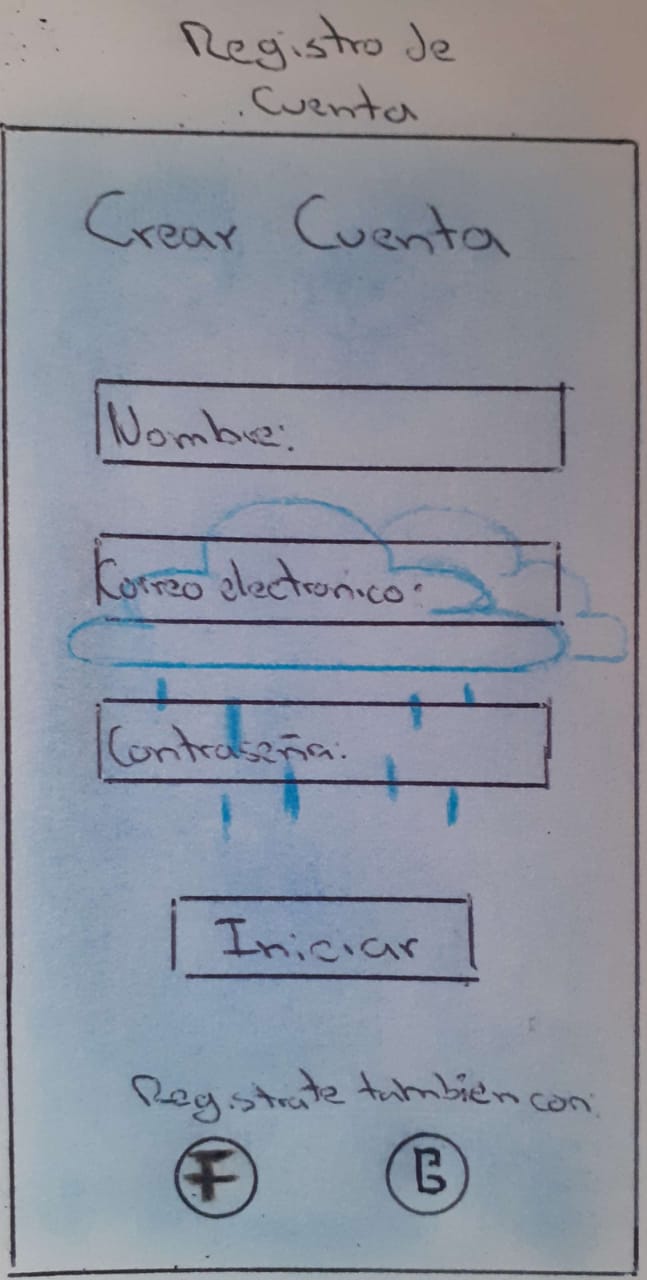 Registro de
Cuenta
Crear Cuenta
Nombre:
Correo electronico:
Contraseña:
Iniciar
Registrate también con:
F G